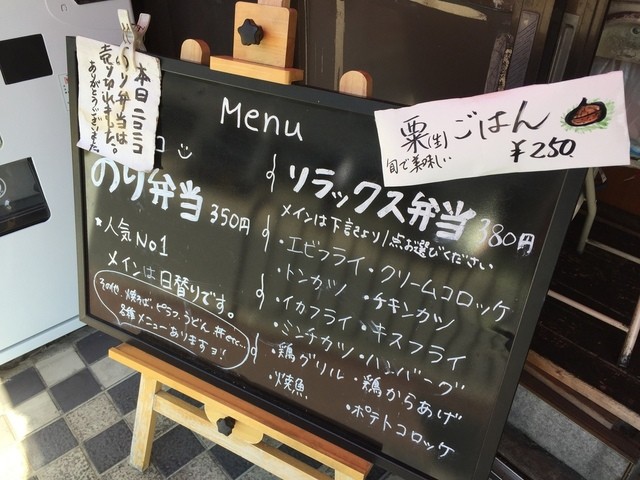 本日ニコニコ
のり弁当は
売り切れました。
ありがとうございました。
Menu
粟(生)ごはん
旬で美味しい
¥250
のり弁当 350円
★人気No1
メインは日替りです。
その他、焼そば、ピラフ、うどん、丼 etc…
各種メニューありますョ!
リラックス弁当 380円
メインは下記より1点お選びください
・エビフライ・クリームコロッケ
・トンカツ ・チキンカツ
・イカフライ・キスフライ
・ミンチカツ・ハンバーグ
・鶏グリル・鶏からあげ
・焼魚 ・ポテトコロッケ